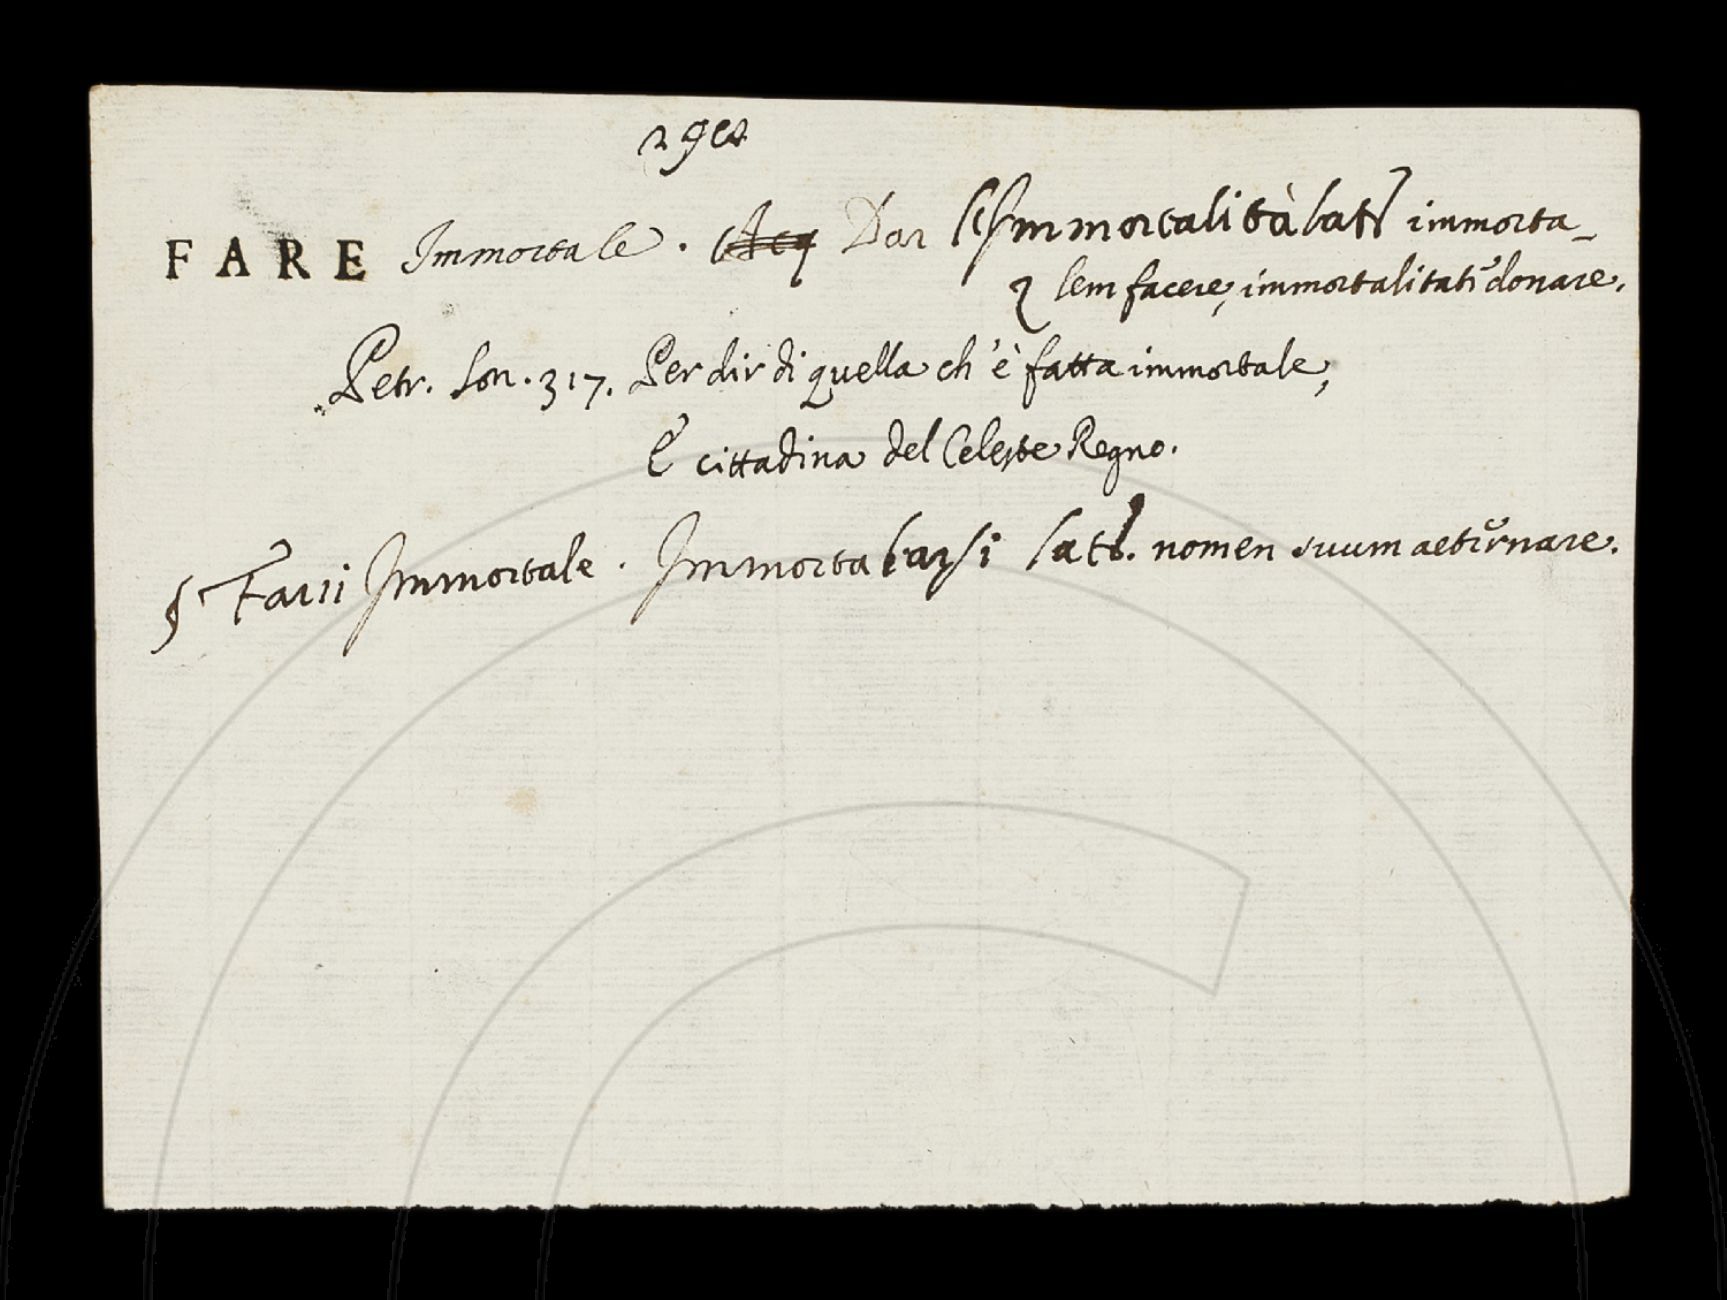 FARE Immortale. Acq Dar l'Immortalità lat. immorta-
lem facere, immortalitati donare.
Petr. Son. 317. Per dir di quella ch'è fatta immortale,
E cittadina del Celeste Regno.
§ Farsi Immortale. Immortalarsi lat. nomen suum aeternare.